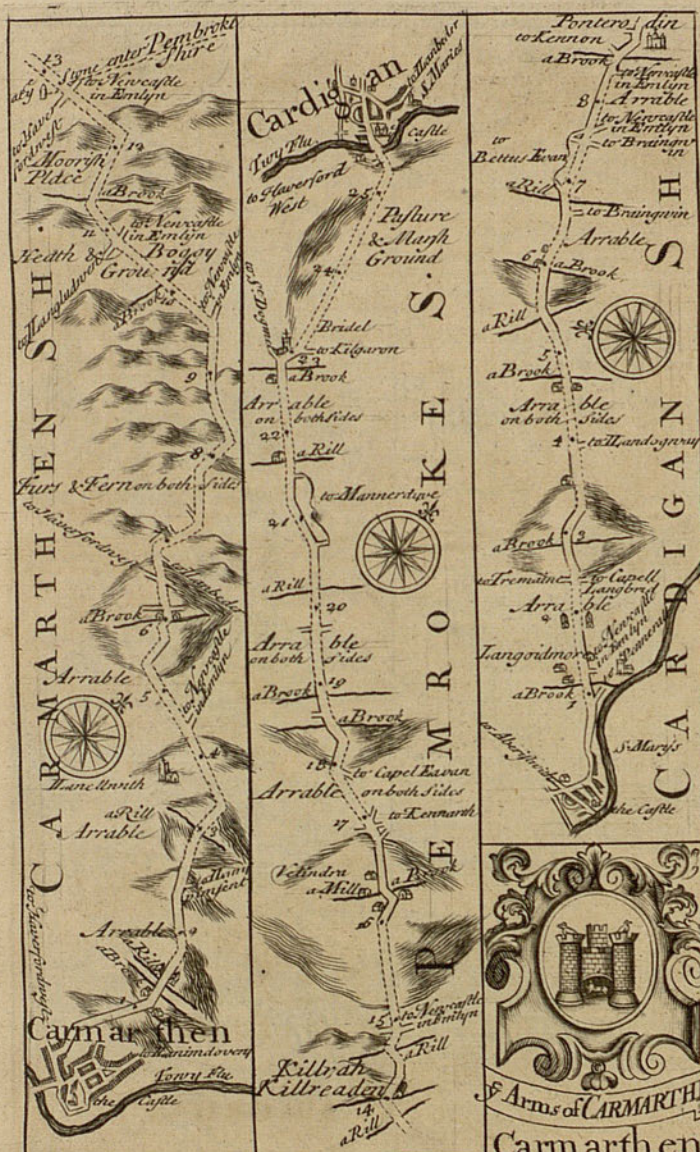 13
Stone enter Pembroke
Shire
to Newcastle
in Emlyn
to Haver
fordwest
12
Moorish
Place
a Brook
to Newcastle
in Emlyn
11
Heath & Boggy
Ground
to Newcastle
in Emlyn
to Llangludwen
a Brook
9
8
Furs & Fern on both Sides
to Haverfordwest
a Brook
6
to Newcastle
in Emlyn
Arrable
5
4
Llanellnnth
a Rill
Arrable
3
Arrable
2
a Rill
a Brook
to Haverfordwest
1
Carmarthen
to Lanimdovery
Towy Flu
the Castle
CARMARTHEN SH.
Cardigan
to Llanbeder
S. Maries
Castle
Tivy Flu
to Haverford
West
25
Pasture
& Marsh
Ground
24
Bridel
to Kilgaron
23
a Brook
Arrable
on both Sides
22
a Rill
to Mannerdive
21
a Rill
20
Arrable
on both Sides
19
a Brook
a Brook
18
to Capel Eavan
Arrable on both Sides
to Kennarth
17
Velindra
a Mill
a Brook
16
15
to Newcastle
in Emlyn
a Rill
Killrah
Killreaden
14
a Rill
PEMBROKE S.
Ponterodin
to Kennon
a Brook
to Newcastle
in Emlyn
8
Arrable
to Newcastle
in Emlyn
to Braingwin
to
Bettus Evan
a Rill
7
to Braingwin
Arrable
6
a Brook
a Rill
5
a Brook
Arrable
on both Sides
4
to Llandogway
a Brook
3
to Tremaine
to Capell
Langbri
Arrable
2
Langoidmore
to Newcastle
in Emlyn
a Brook
1
S. Marys
the Castle
CARDIGAN SH
ye Arms of CARMARTH
Carmarthen